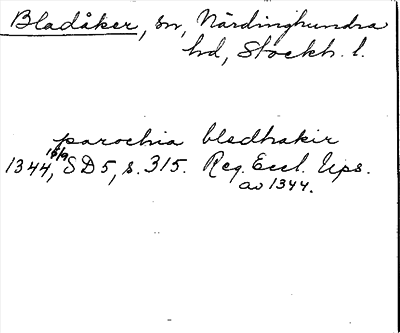 Bladåker, sn, Närdinghundra
hd, Stockh. l.
parochia bledhakir
1344, 16/9 SD 5, s. 315. Reg. Eccl. Ups.
av 1344.